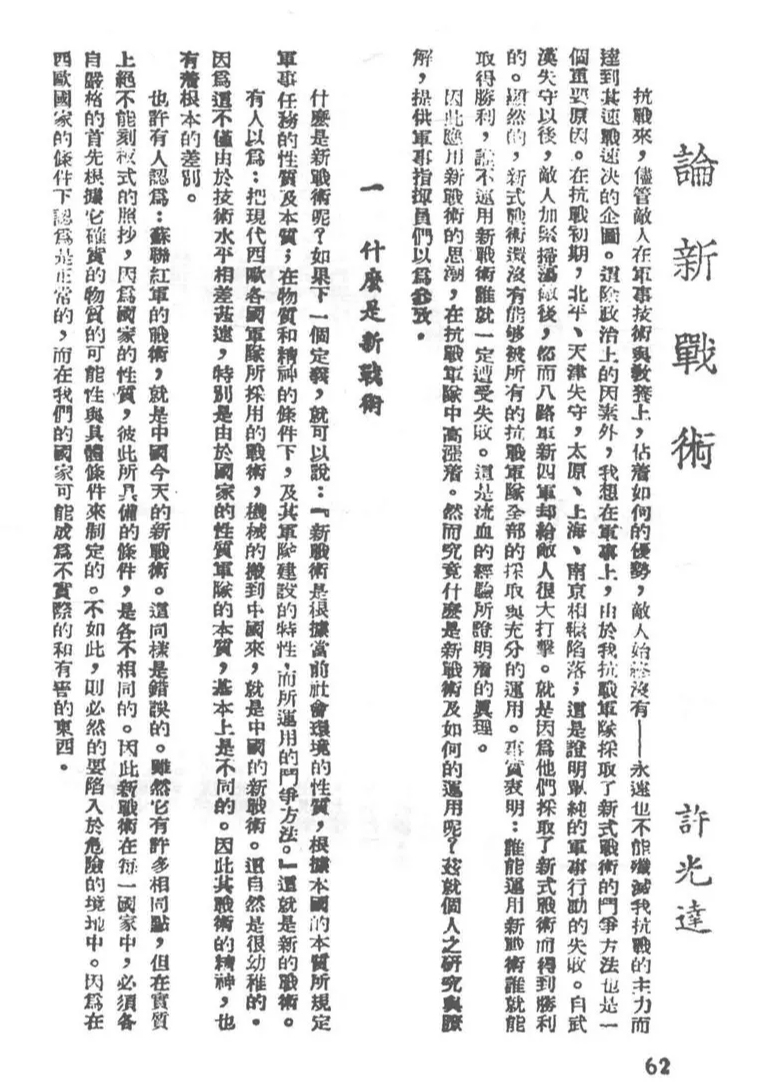 論新戰術
許光達
抗戰來，儘管敵人在軍事技術與敎養上，佔着如何的優勢，敵人始終沒有——永遠也不能殲滅我抗戰的主力而
達到其速戰速決的企圖。這除政治上的因素外，我想在軍事上，由於我抗戰軍隊採取了新式戰術的鬥爭方法也是一
個重要原因。在抗戰初期，北平、天津失守，太原、上海、南京相繼陷落；這是證明單純的軍事行動的失敗。自武
漢失守以後，敵人加緊掃蕩敵後，然而八路軍新四軍却給敵人很大打擊。就是因爲他們採取了新式戰術而得到勝利
的。顯然的，新式戰術還沒有能够被所有的抗戰軍隊全部的採取與充分的運用。事實表明：誰能運用新戰術誰就能
取得勝利，誰不運用新戰術誰就一定遭受失敗。這是流血的經驗所證明着的眞理。
因此應用新戰術的思潮，在抗戰軍隊中高漲着。然而究竟什麼是新戰術及如何的運用呢？茲就個人之研究與瞭
解，提供軍事指揮員們以爲參攷。
一　什麼是新戰術
什麼是新戰術呢？如果下一個定義，就可以說：『新戰術是根據當前社會環境的性質，根據本國的本質所規定
軍事任務的性質及本質；在物質和精神的條件下，及其軍隊建設的特性，而所運用的鬥爭方法。』這就是新的戰術。
有人以爲：把現代西歐各國軍隊所採用的戰術，機械的搬到中國來，就是中國的新戰術。這自然是很幼稚的。
因爲這不僅由於技術水平相差甚遠，特別是由於國家的性質軍隊的本質，基本上是不同的。因此其戰術的精神，也
有着根本的差別。
也許有人認爲：蘇聯紅軍的戰術，就是中國今天的新戰術。這同樣是錯誤的。雖然它有許多相同點，但在實質
上絕不能刻板式的照抄，因爲國家的性質，彼此所具備的條件，是各不相同的。因此新戰術在每一國家中，必須各
自嚴格的首先根據它確實的物質的可能性與具體條件來制定的。不如此，則必然的要陷入於危險的境地中。因爲在
西歐國家的條件下認爲是正常的，而在我們的國家可能成爲不實際的和有害的東西。
62